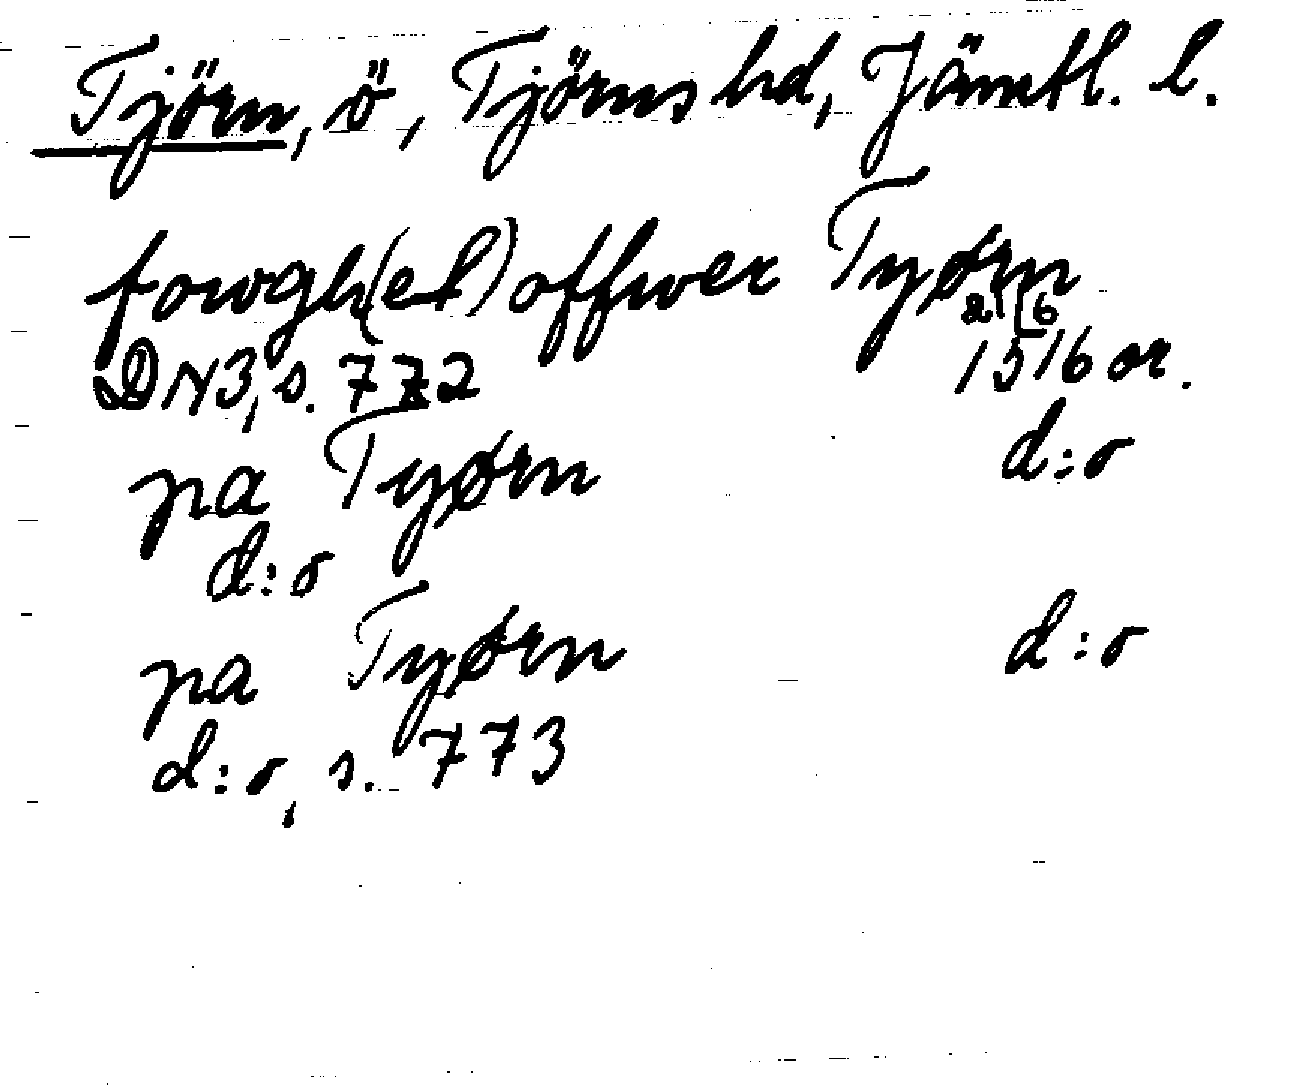 Tjörn, ö, Tjörns hd, Jämtl. l.
fowgh(et) offwer Tyørn
DN 3, s. 772 21/6 1516 or.
pa Tyørn d:o
d:o
pa Tyørn d:o
d:o, s. 773